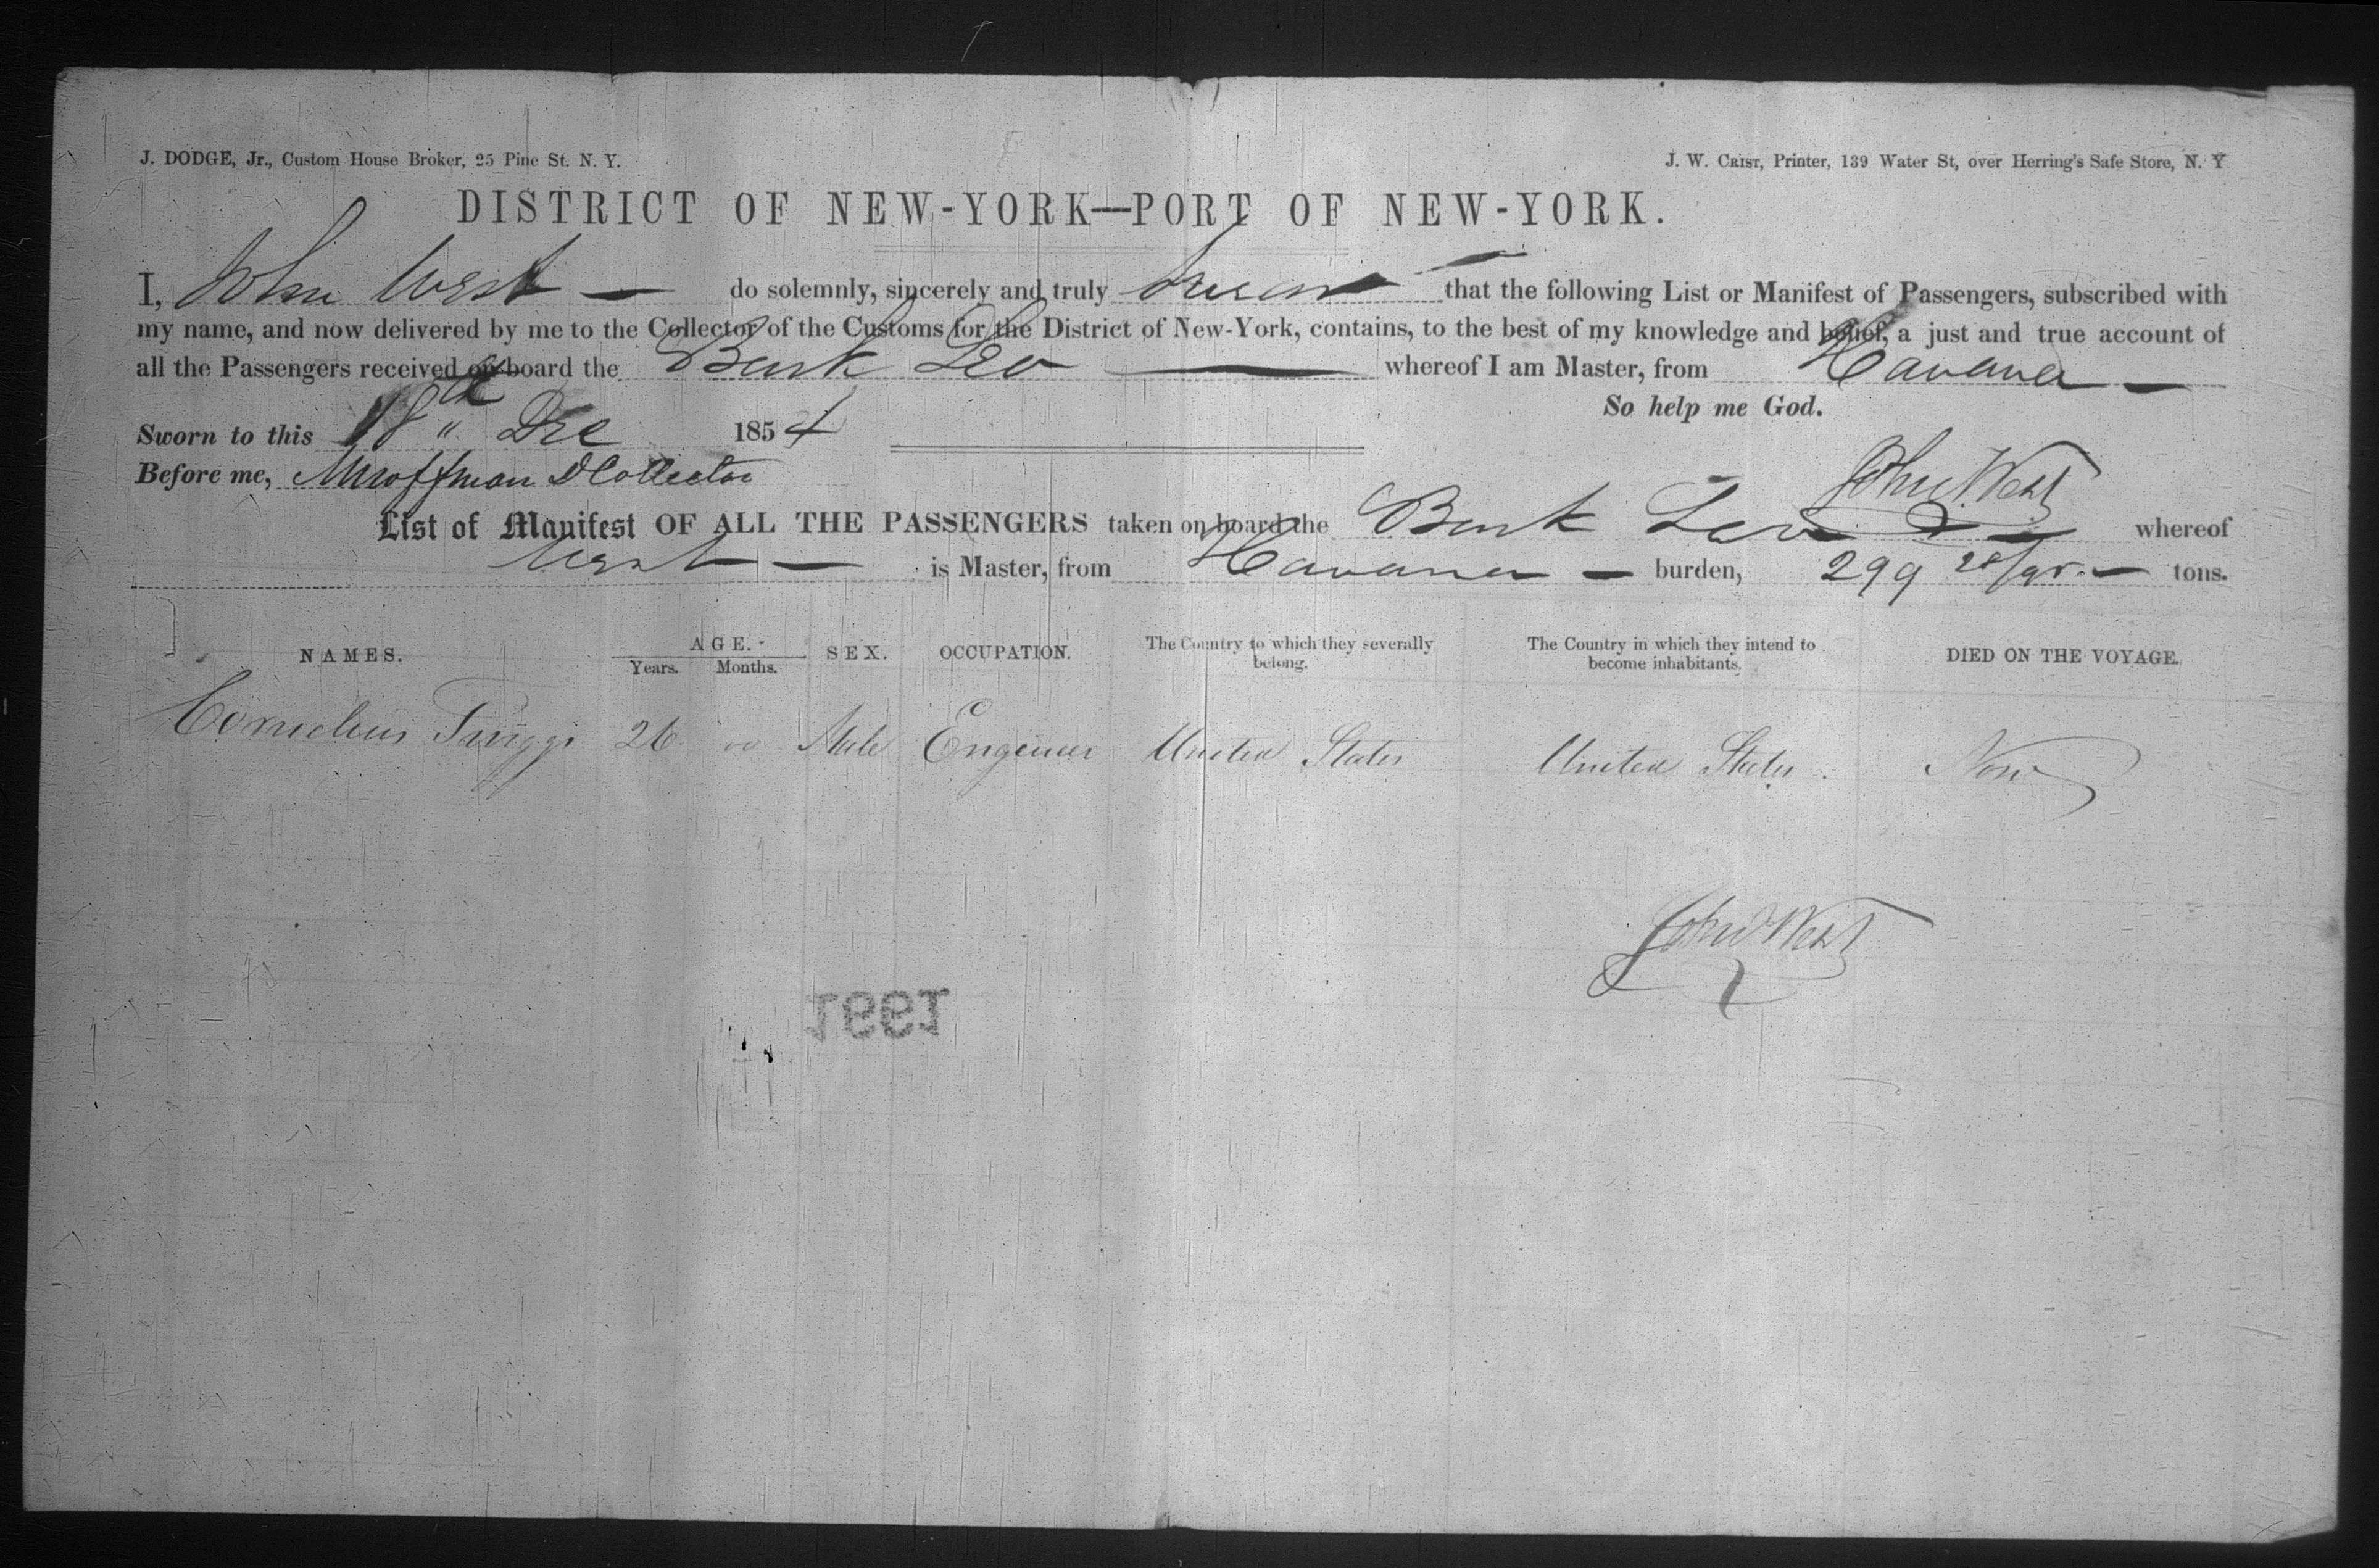 J. DODGE, Jr., Custom House Broker, 25 Pine St. N. Y.
J. W. CRIST, Printer, 139 Water St, over Herring's Safe Store, N. Y
DISTRICT OF NEW-YORK—PORT OF NEW-YORK.
I, John West — do solemnly, sincerely and truly swear that the following List or Manifest of Passengers, subscribed with
my name, and now delivered by me to the Collector of the Customs for the District of New-York, contains, to the best of my knowledge and belief, a just and true account of
all the Passengers received on board the Bark Leo — whereof I am Master, from Havana —
So help me God.
Sworn to this 18th " Dec 1854
John West
Before me, D Collector
List of Manifest OF ALL THE PASSENGERS taken on board the Bark Leo — whereof
West — is Master, from Havana — burden, 299 28/95 — tons.
NAMES. AGE. SEX. OCCUPATION. The Country to which they severally belong. The Country in which they intend to become inhabitants. DIED ON THE VOYAGE.
Years. Months.
Cornelius 26 oo Male Engineer United States United States. None
John West
1991